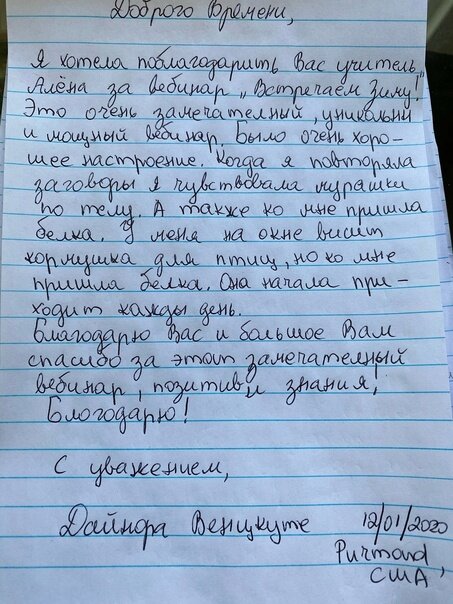 Доброго Времени,
Я хотела поблагодарить Вас учитель,
Алёна за вебинар „Встречаем Зиму!
Это очень замечателный, уникальни
и мощный вебинар. Было очень хоро-
шее настроение. Когда я повторяла
заговоры я чувствовала мурашки
по телу. А также ко мне пришла
белка. У меня на окне висит
кормушка для птиц, но ко мне
пришла белка. Она начала при-
ходит кажды день.
Благодарю Вас и большое Вам
спасибо за этот замечателный
вебинар, позитив и знания!
Благодарю!
С уважением,
Дайнора Венцкуте
12/01/2020
США